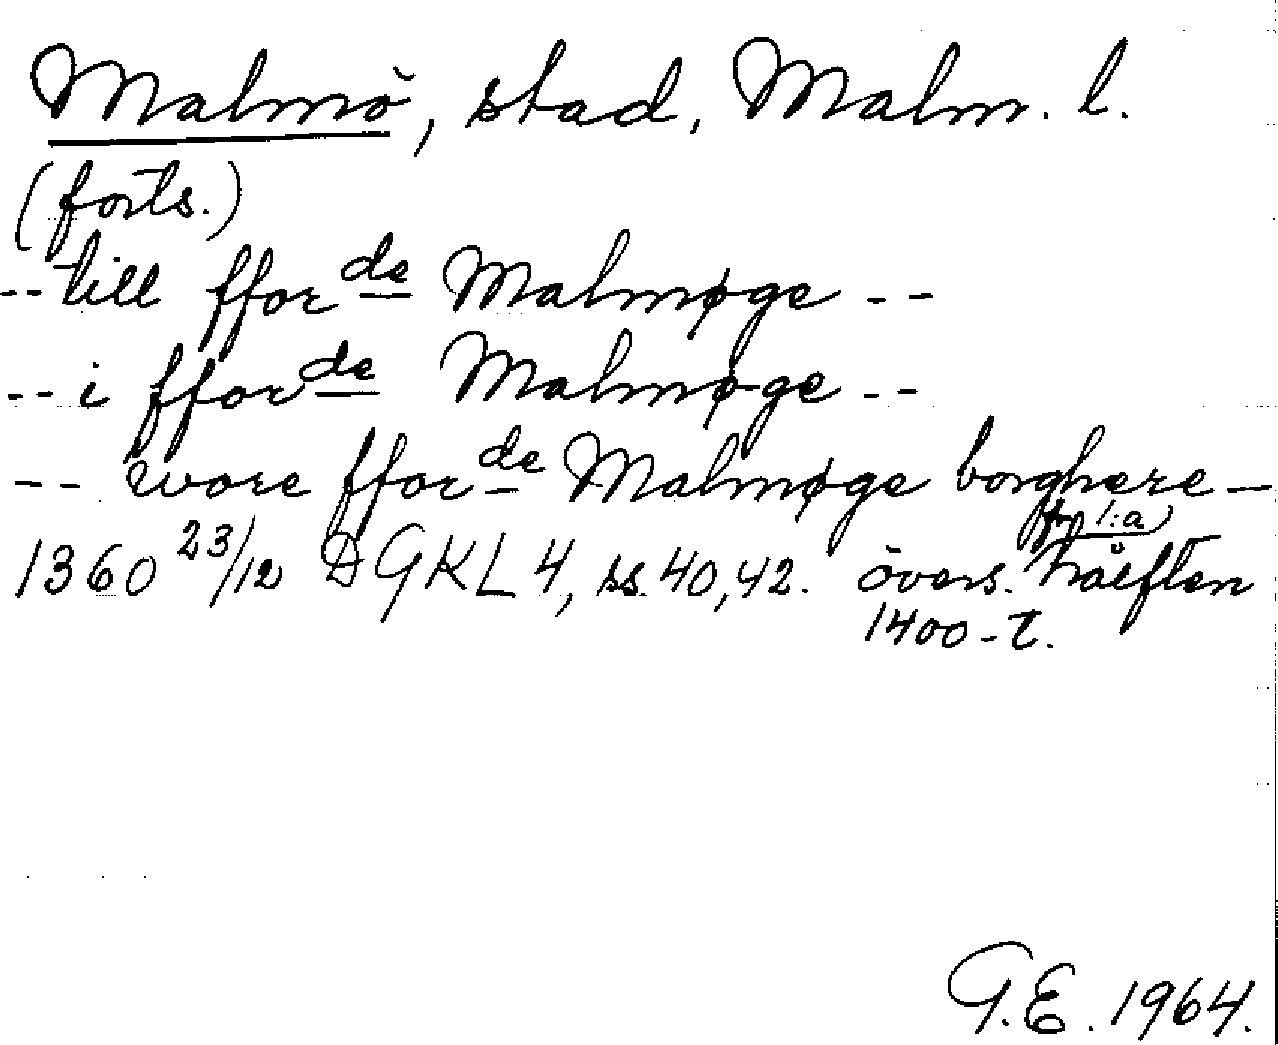 Malmö, stad, Malm. l.
(forts.)
-- till ffor de Malmøge --
-- i ffor de Malmøge --
-- wore ffor de Malmøge borghere --
1360 23/12 DGKL 4, ss. 40, 42. övers. från 1:a hälften
1400-t.
G.E. 1964.